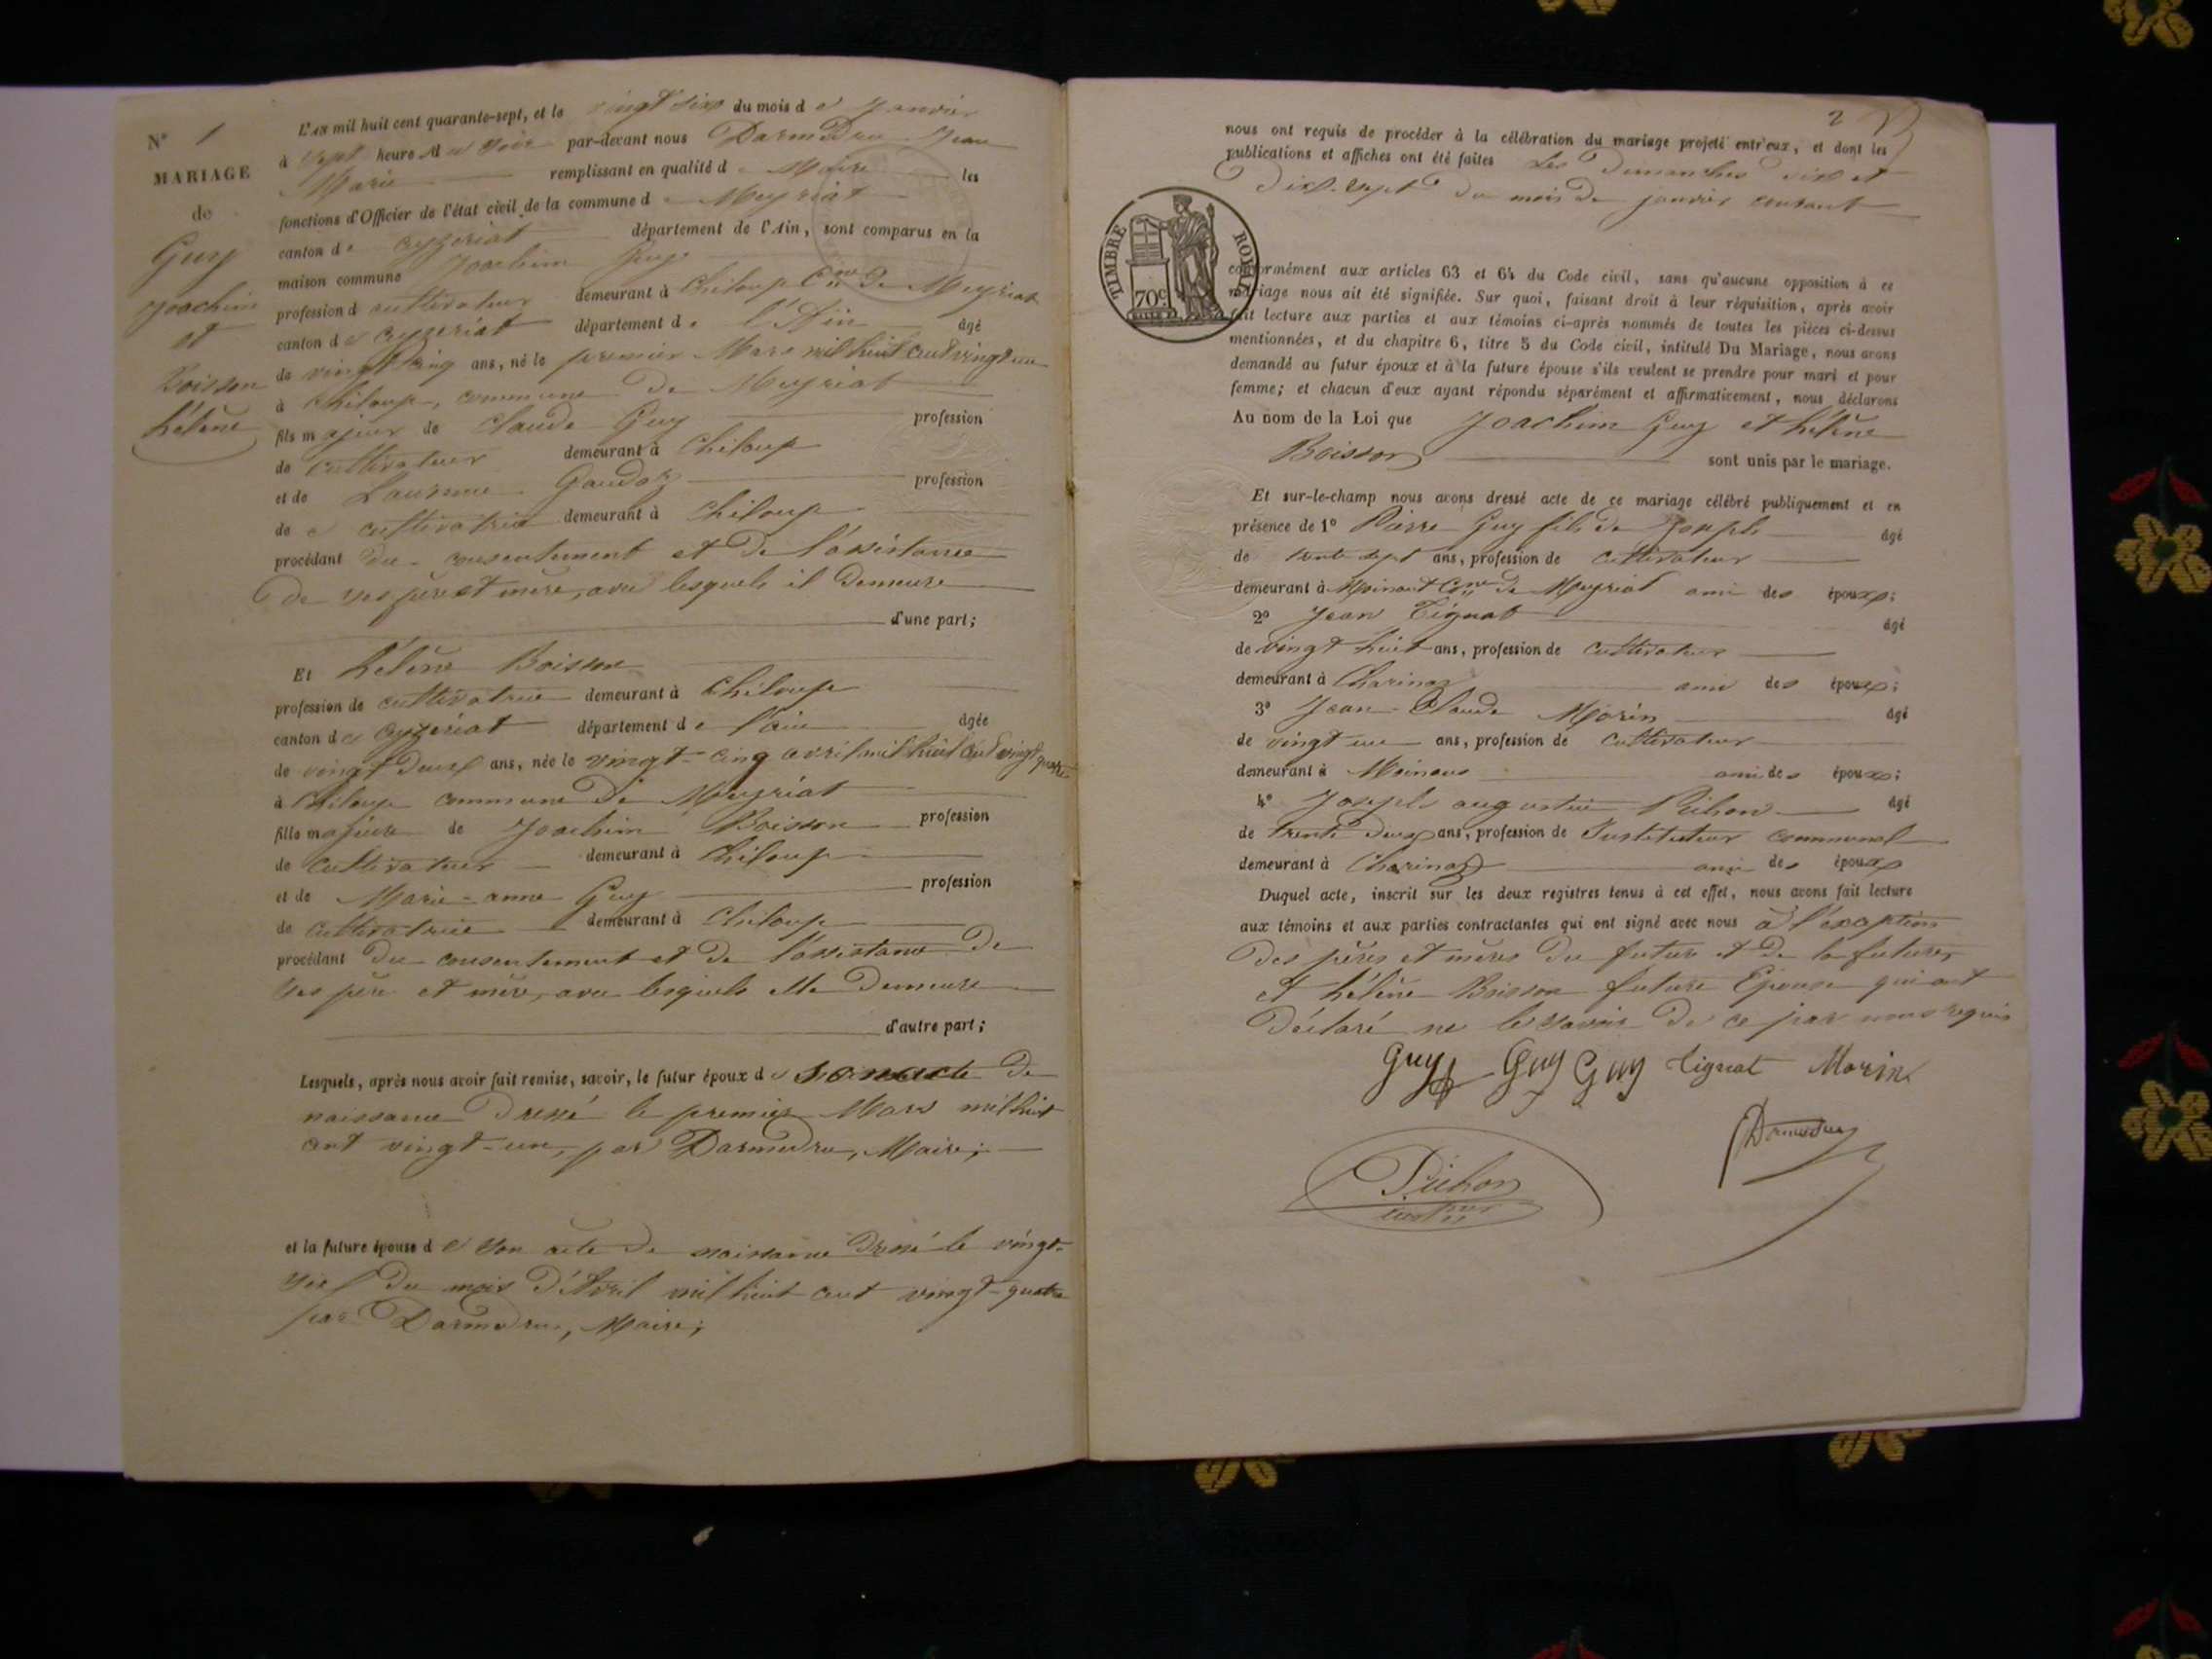 N° 1
MARIAGE
de
Guy
Joachim
et
Boisson
hélène
L'AN mil huit cent quarante-sept, et le vingt six du mois de Janvier
à Sept heures du Soir par-devant nous Darmedru Jean
Marie remplissant en qualité de Maire les
fonctions d'Officier de l'état civil de la commune de Meyriat
canton de Ceyzeriat département de l'Ain, sont comparus en la
maison commune Joachim Guy
profession de cultivateur demeurant à Chiloup Cne de Meyriat
canton de Ceyzeriat département de l'Ain âgé
de vingt cinq ans, né le premier Mars mil huit cent vingt un
à Chiloup, commune de Meyriat
fils majeur de Claude Guy profession
de cultivateur demeurant à Chiloup
et de Laurence Gaudoz profession
de cultivatrice demeurant à Chiloup
procédant du consentement et de l'assistance
de ses père et mère, avec lesquels il demeure
d'une part;
Et hélène Boisson
profession de cultivatrice demeurant à Chiloup
canton de Ceyzeriat département de l'ain âgée
de vingt deux ans, née le vingt-cinq avril mil huit cent vingt quatre
à Chiloup commune de Meyriat
fille majeure de Joachim Boisson profession
de cultivateur demeurant à Chiloup
et de Marie-anne Guy profession
de cultivatrice demeurant à Chiloup
procédant du consentement et de l'assistance de
ses père et mère, avec lesquels elle demeure
d'autre part;
Lesquels, après nous avoir fait remise, savoir, le futur époux de son acte de
naissance dressé le premier Mars mil huit
cent vingt-un, par Darmedru, Maire;
et la future épouse de son acte de naissance dressé le vingt-
six du mois d'Avril mil huit cent vingt-quatre
par Darmedru, Maire;
2
nous ont requis de procéder à la célébration du mariage projeté entr'eux, et dont les
publications et affiches ont été faites Les Dimanches dix et
Dix-Sept du mois de janvier courant
TIMBRE ROYAL
70c
conformément aux articles 63 et 64 du Code civil, sans qu'aucune opposition à ce
mariage nous ait été signifiée. Sur quoi, faisant droit à leur réquisition, après avoir
fait lecture aux parties et aux témoins ci-après nommés de toutes les pièces ci-dessus
mentionnées, et du chapitre 6, titre 5 du Code civil, intitulé Du Mariage, nous avons
demandé au futur époux et à la future épouse s'ils veulent se prendre pour mari et pour
femme; et chacun d'eux ayant répondu séparément et affirmativement, nous déclarons
Au nom de la Loi que Joachim Guy et hélène
Boisson sont unis par le mariage.
Et sur-le-champ nous avons dressé acte de ce mariage célébré publiquement et en
présence de 1° Pierre Guy fils de Joseph âgé
de trente sept ans, profession de cultivateur
demeurant à Moinant Cne de Meyriat ami des époux;
2° Jean Tignat âgé
de vingt huit ans, profession de cultivateur
demeurant à Charinaz ami des époux;
3° Jean-Claude Morin âgé
de vingt un ans, profession de cultivateur
demeurant à Moinans ami des époux;
4° Joseph augustin Pichon âgé
de trente deux ans, profession de Instituteur communal
demeurant à Charinaz ami des époux
Duquel acte, inscrit sur les deux registres tenus à cet effet, nous avons fait lecture
aux témoins et aux parties contractantes qui ont signé avec nous à l'exception
des pères et mères du futur et de la future,
et hélène Boisson future Epouse qui ont
déclaré ne le savoir de ce par nous requis
Guy Guy Guy Tignat Morin
Darmedru
Pichon